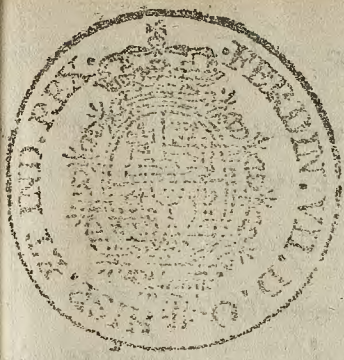 ·FERDIN·VII·D·G·HISP·ET IND·REX·